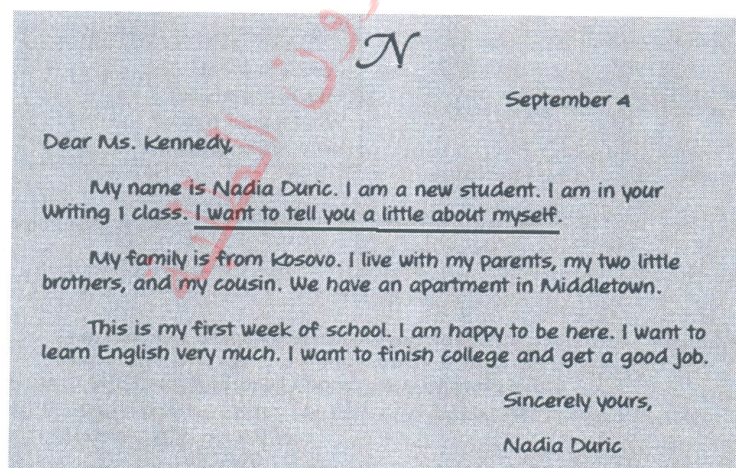 N
September 4
Dear Ms. Kennedy,
My name is Nadia Duric. I am a new student. I am in your
Writing 1 class. I want to tell you a little about myself.
My family is from Kosovo. I live with my parents, my two little
brothers, and my cousin. We have an apartment in Middletown.
This is my first week of school. I am happy to be here. I want to
learn English very much. I want to finish college and get a good job.
Sincerely yours,
Nadia Duric